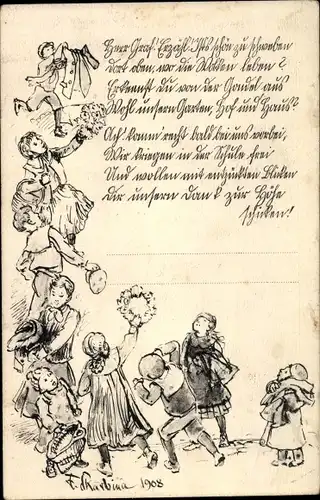 Herr Graf! Erzähl! Ist's schön zu schweben
dort oben, wo die Wolken leben?
Erkennst du von der Gondel aus
Wohl unsern Garten, Hof und Haus?
Ach komm recht bald bei uns vorbei,
Wir kriegen in der Schule frei
Und wollen mit entzückten Blicken
Dir unsern Dank zur Höhe
schicken!
F. Skarbina 1908